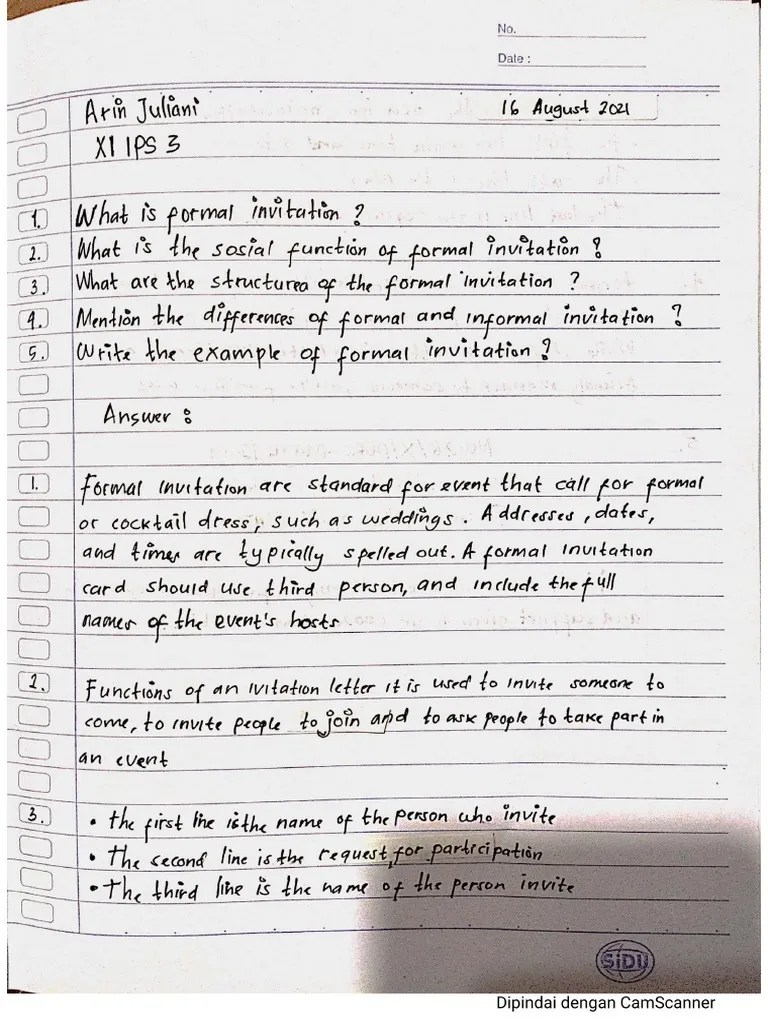 No.
Date :
Arin Juliani
16 August 2021
XI IPS 3
1. What is formal invitation ?
2. What is the sosial function of formal invitation ?
3. What are the structurea of the formal invitation ?
4. Mention the differences of formal and informal invitation ?
5. Write the example of formal invitation ?
Answer :
1. Formal invitation are standard for event that call for formal
or cocktail dress, such as weddings. Addresses, dates,
and times are typically spelled out. A formal invitation
card should use third person, and include the full
names of the event's hosts.
2. Functions of an ivitation letter it is used to invite someone to
come, to invite people to join and to ask people to take part in
an event
3. • the first line is the name of the person who invite
• The second line is the request for participation
• The third line is the name of the person invite
SiDU
Dipindai dengan CamScanner